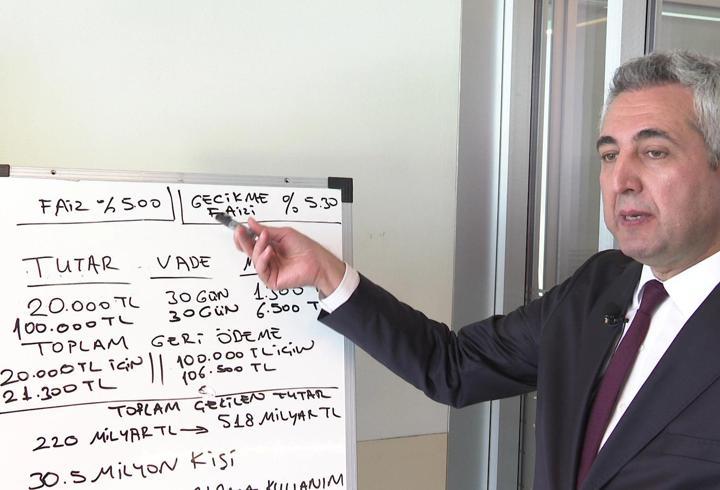 FAİZ %500
GECİKME FAİZİ % 5.30
TUTAR VADE
20.000 TL 30 GÜN 1.300
100.000 TL 30 GÜN 6.500 T
TOPLAM GERİ ÖDEME
20.000 TL İÇİN || 100.000 TL İÇİN
21.300 TL 106.500 TL
TOPLAM ÇEKİLEN TUTAR
220 MİLYAR TL → 518 MİLYAR TL
30.5 MİLYON KİŞİ
KULLANIM